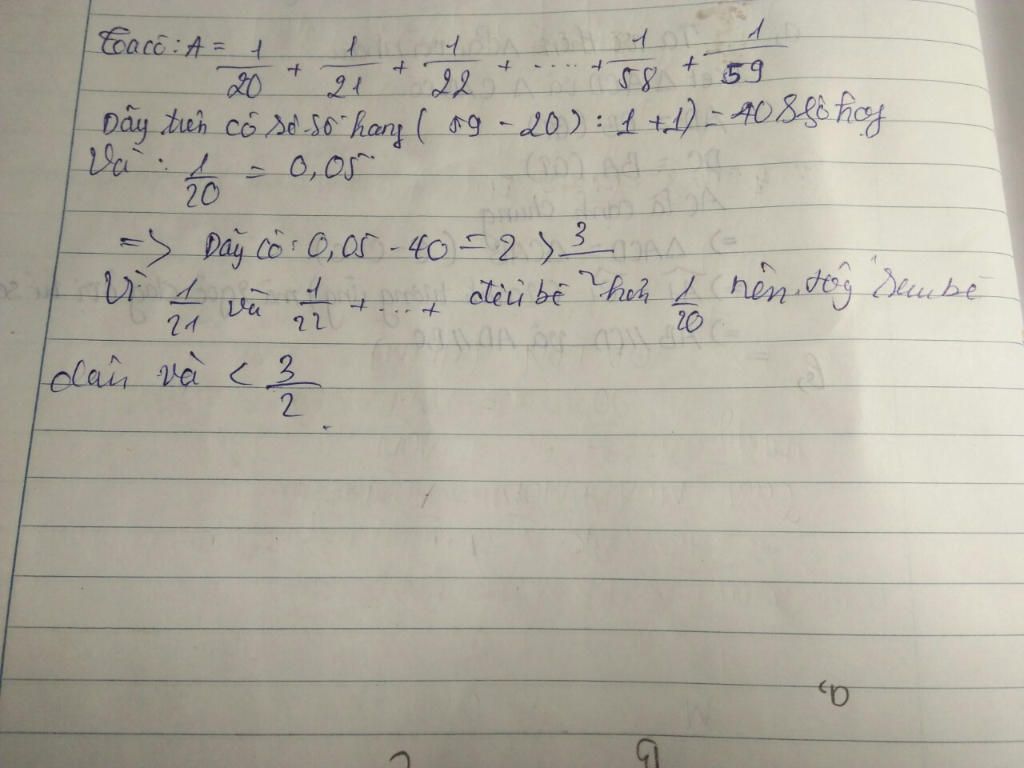 Ta có : A = 1/20 + 1/21 + 1/22 + ..... + 1/58 + 1/59
Dãy trên có số số hạng ( 59 - 20 ) : 1 + 1) = 40 số hạng
Và : 1/20 = 0,05
=> Dãy có : 0,05 - 40 = 2 > 3
Vì 1/21 và 1/22 + ... + đều bé hơn 1/20 nên dãy bé
dần và < 3/2 .
a,